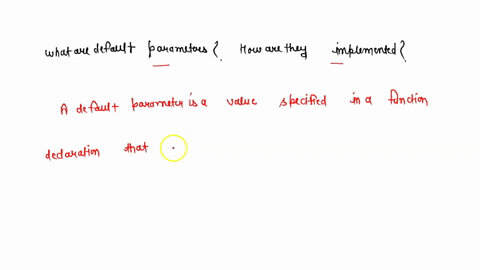 what are default parameters? How are they implemented?
A default parameter is a value specified in a function
declaration that